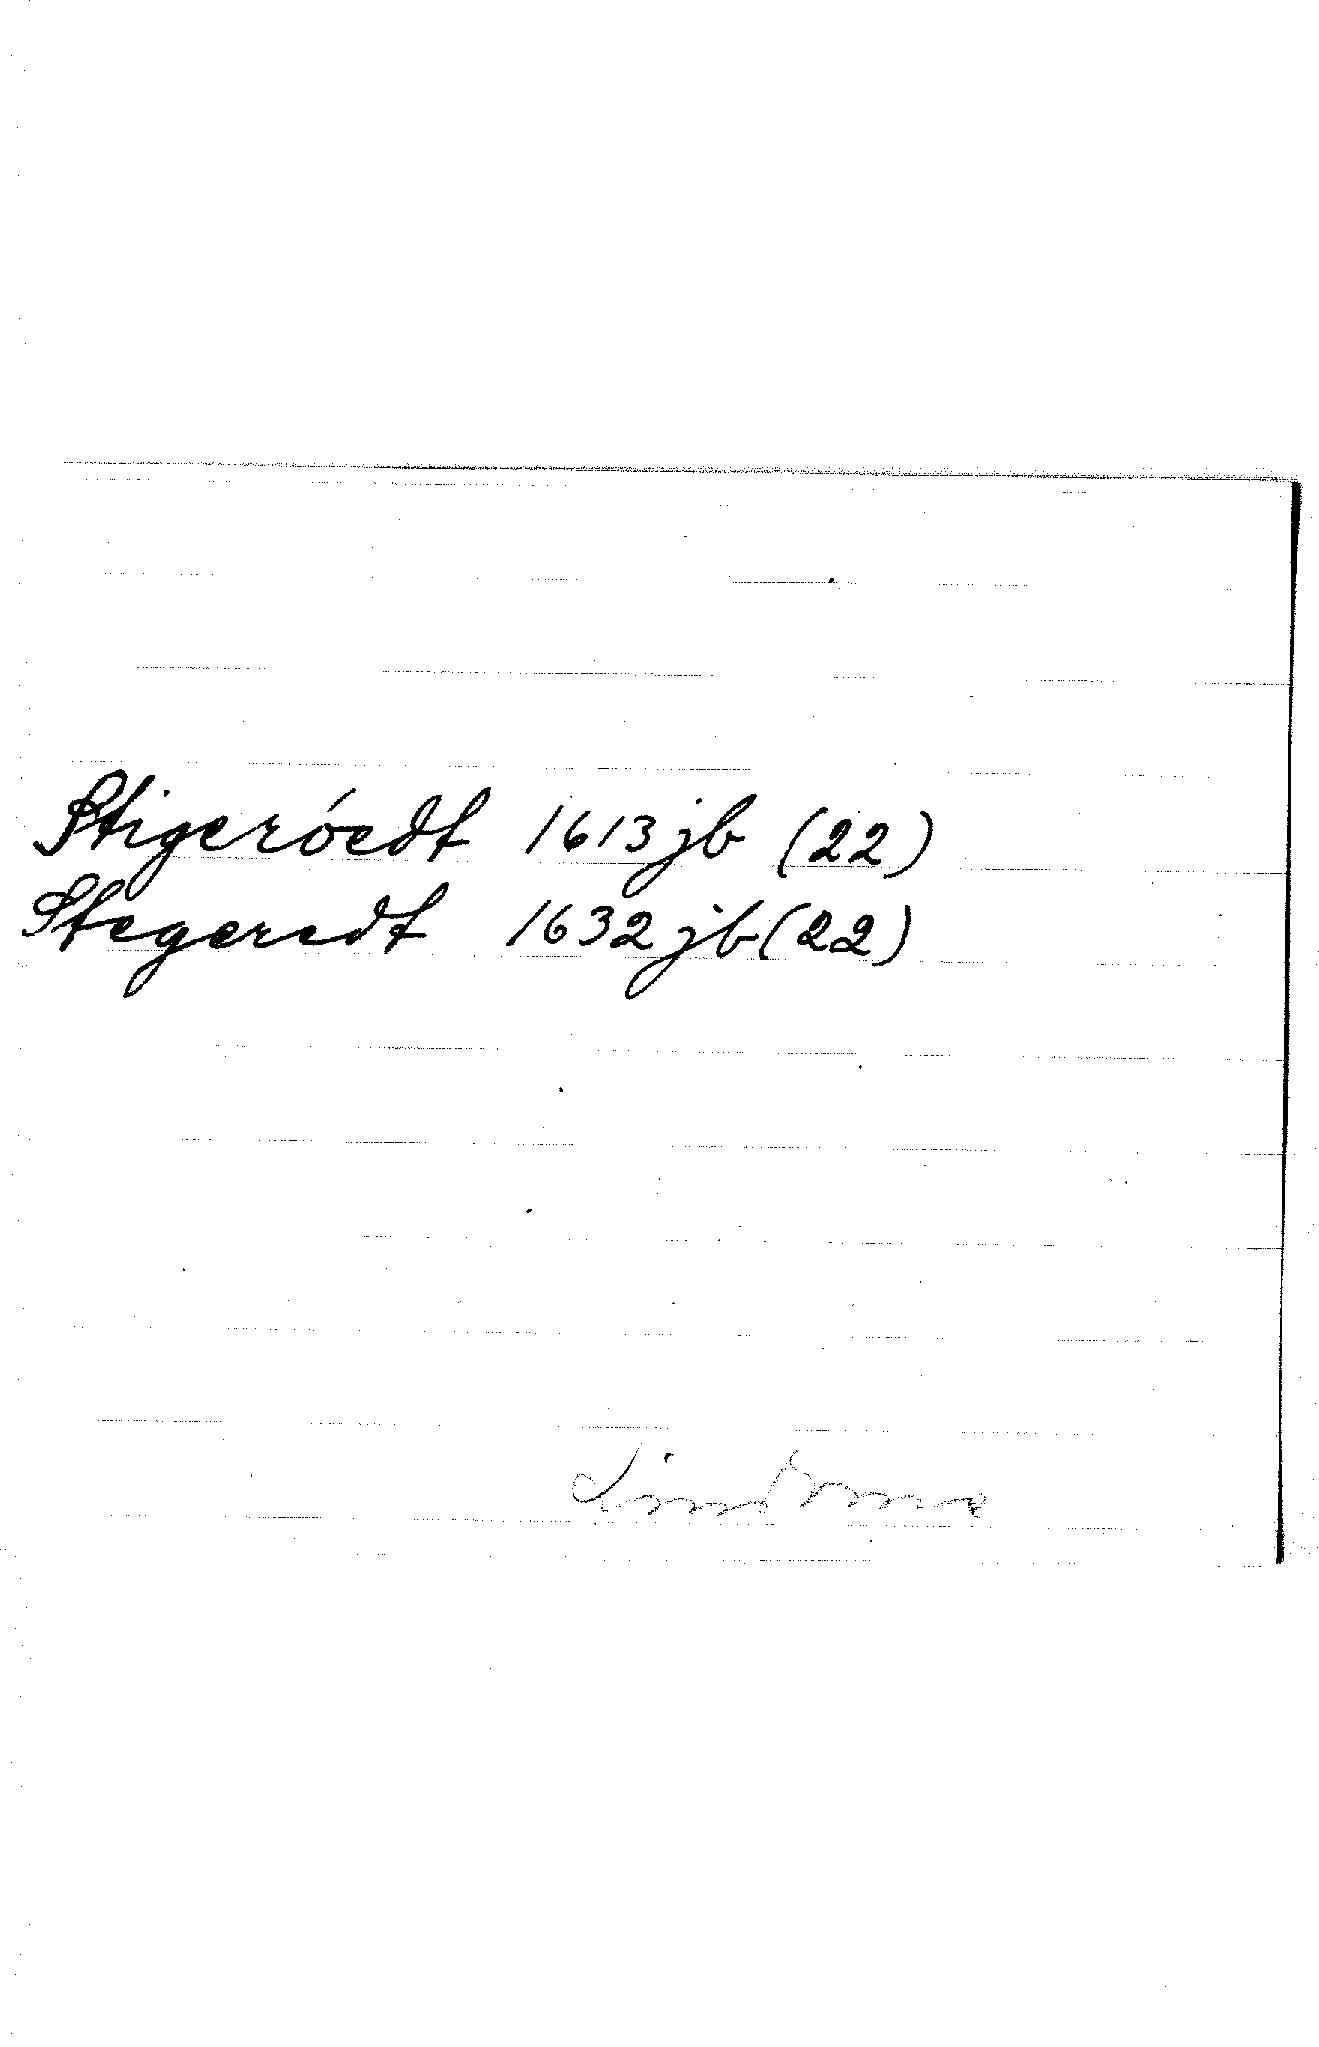 Stigeróedt 1613 jb (22)
Stegeredt 1632 jb (22)
Lindome